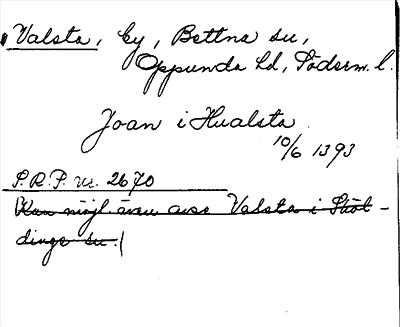 Valsta, by, Bettna sn,
Oppunda hd, Söderm. l.
Joan i Hualsta
10/6 1393
S.R.P. nr. 2670
(Kan möjl. även avse Valsta i Stöt-
dinge sn.)